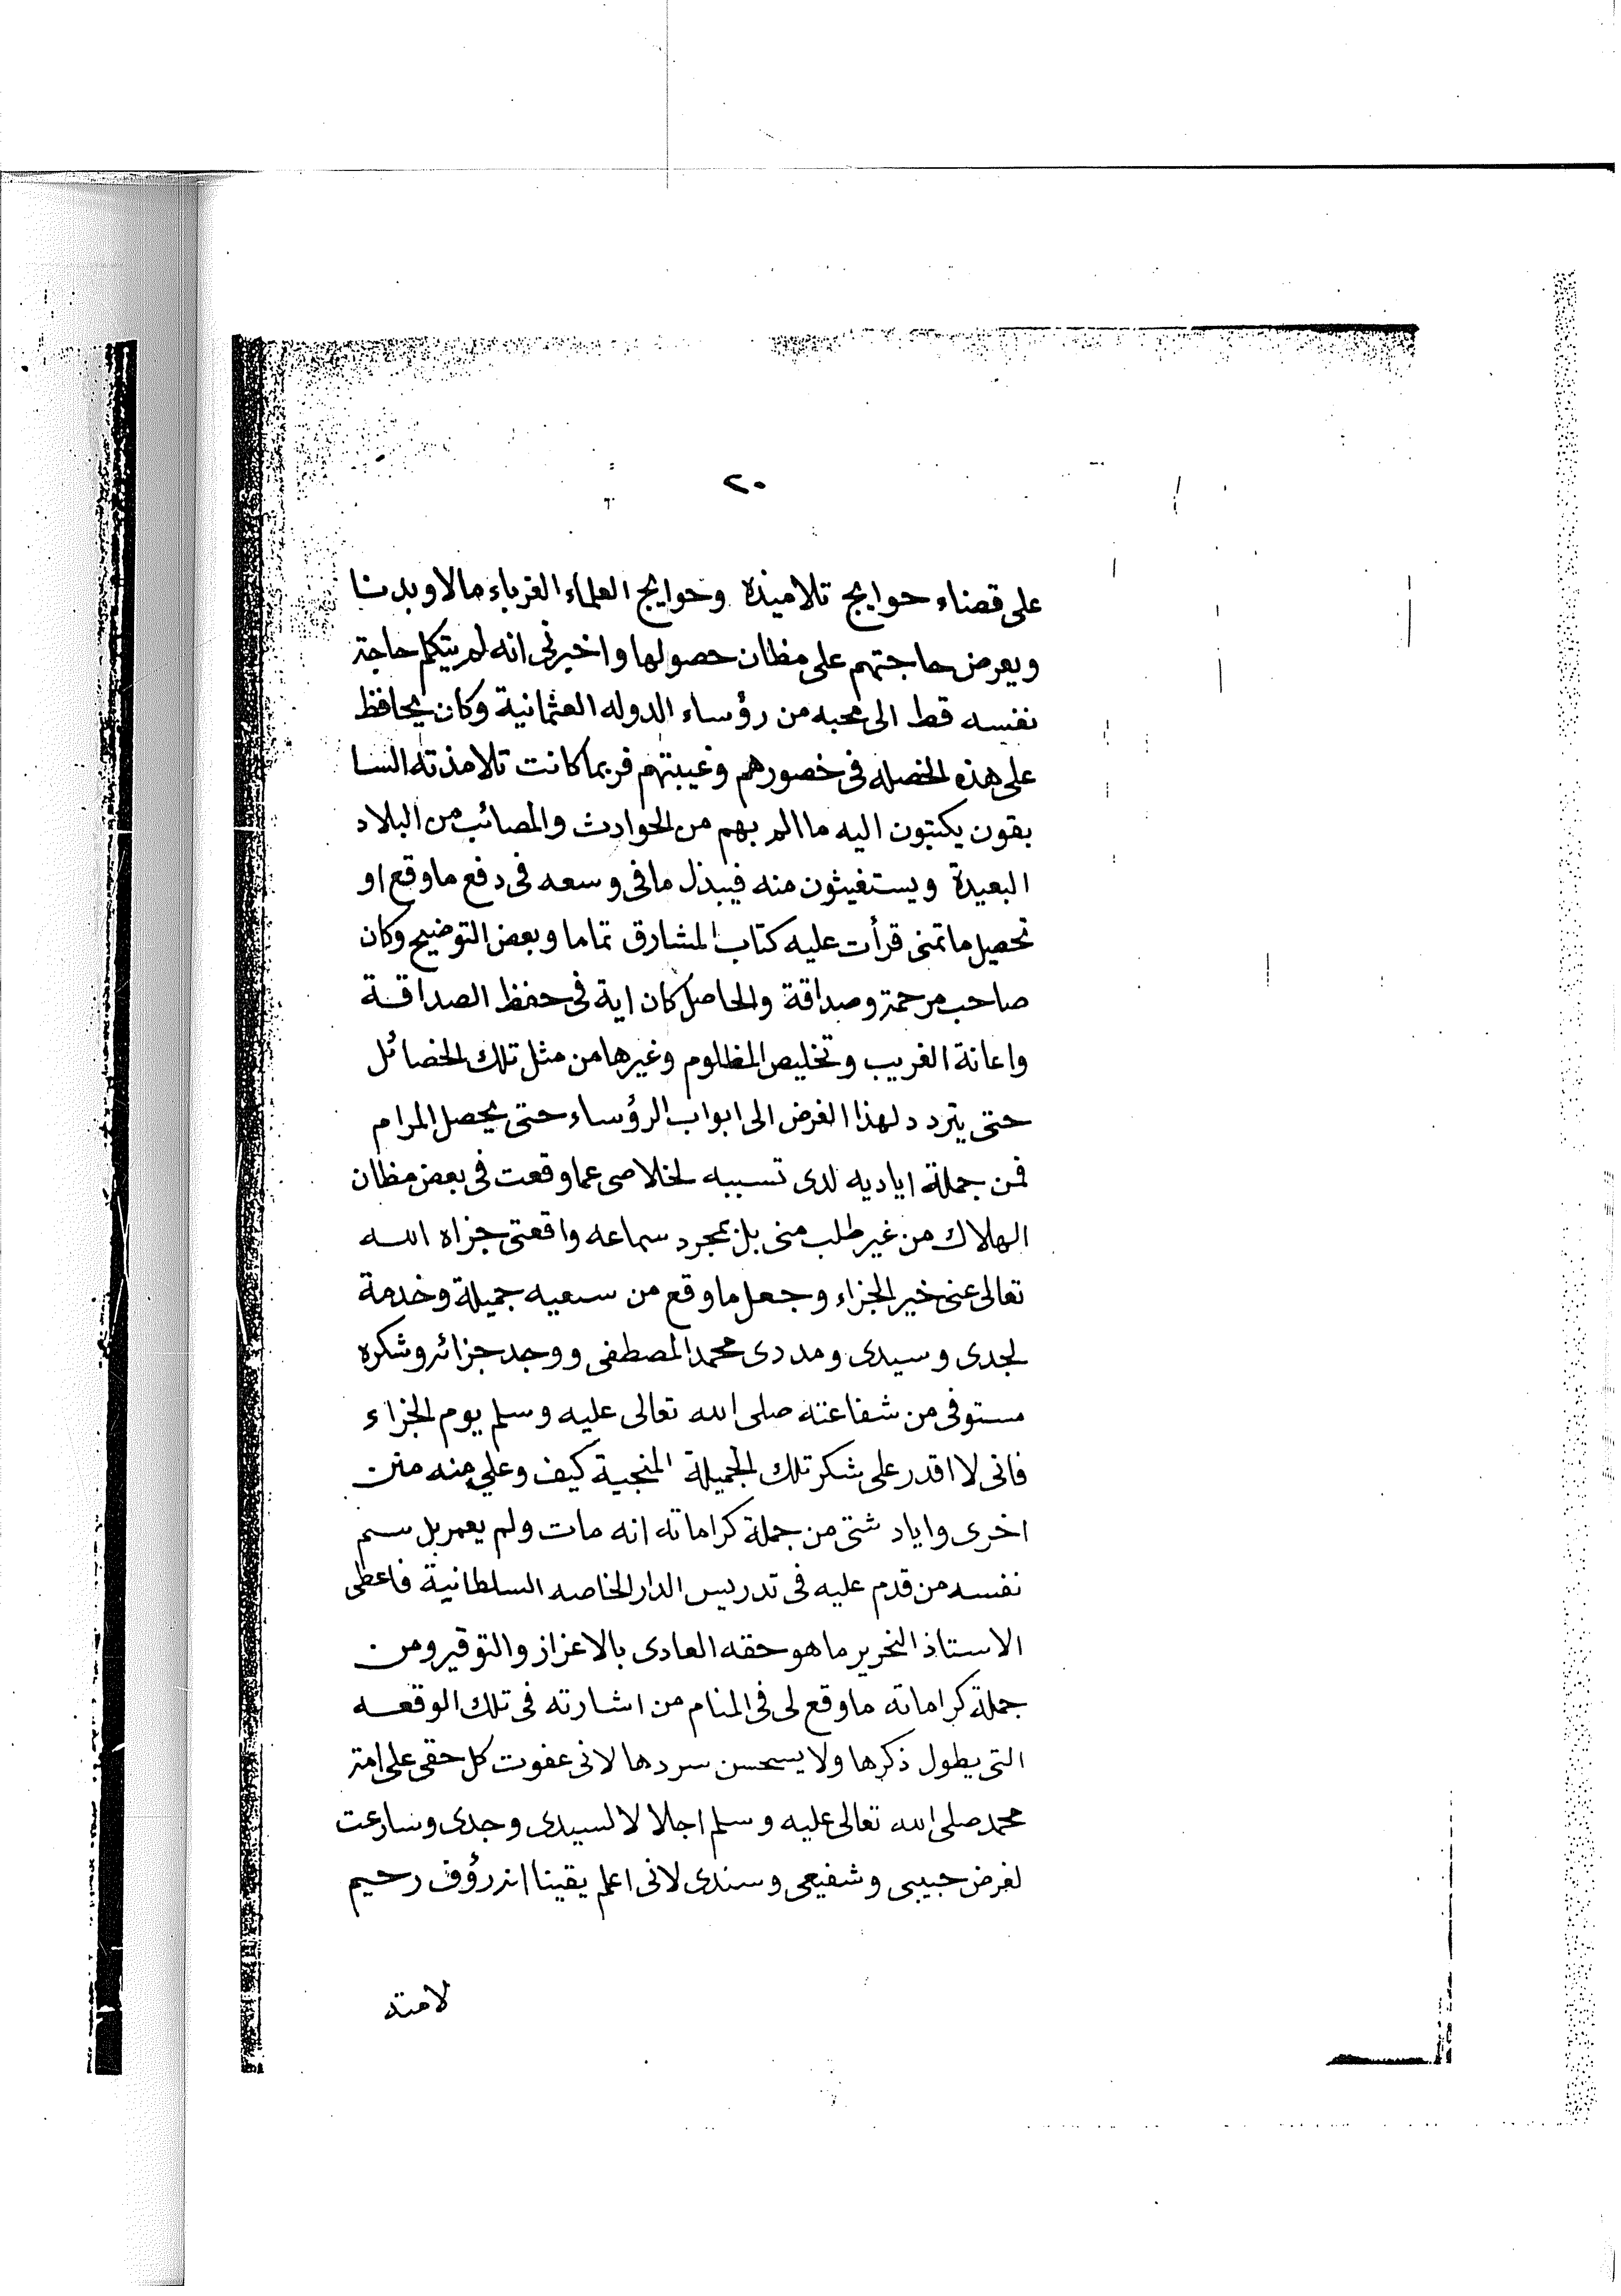 ٢٠
على قضاء حوايج تلاميذه وحوايج العلماء الغرباء مالا وبدنا
ويعرض حاجتهم على مظان حصولها واخبرنى انه لم يتكلم حاجة
نفسه قط الى محبه من رؤساء الدوله العثمانية وكان يحافظ
على هذه الخصله فى خصورهم وغيبتهم فربما كانت تلامذته السا
بقون يكتبون اليه ما الم بهم من الحوادث والمصائب من البلاد
البعيدة ويستغيثون منه فيبذل ما فى وسعه فى دفع ما وقع او
تحصيل ما تمنى قرأت عليه كتاب المشارق تماما وبعض التوضيح وكان
صاحب مرحمة وصداقة والحاصل كان اية فى حفظ الصداقة
واعانة الغريب وتخليص المظلوم وغيرها من مثل تلك الخصائل
حتى يتردد لهذا الغرض الى ابواب الرؤساء حتى يحصل المرام
فمن جملة اياديه لدى تسببه لخلاصى عما وقعت فى بعض مظان
الهلاك من غير طلب منى بل بمجرد سماعه واقعتى جزاه الله
تعالى عنى خير الجزاء وجعل ما وقع من سعيه جميلة وخدمة
لجدى وسيدى ومددى محمد المصطفى ووجد جزائه وشكره
مستوفى من شفاعته صلى الله تعالى عليه وسلم يوم الجزاء
فانى لا اقدر على شكر تلك الجميلة المنجية كيف وعلي منه منن
اخرى واياد شتى من جملة كراماته انه مات ولم يعمر بل سم
نفسه من قدم عليه فى تدريس الدار الخاصه السلطانية فاعطى
الاستاذ النحرير ما هو حقه العادى بالاعزاز والتوقير ومن
جملة كراماته ما وقع لى فى المنام من اشارته فى تلك الوقعه
التى يطول ذكرها ولا يسحسن سردها لانى عفوت كل حقى على امة
محمد صلى الله تعالى عليه وسلم اجلالا لسيدى وجدى وسارعت
لغرض حبيبى وشفيعى وسندى لانى اعلم يقينا انه رؤف رحيم
لامته